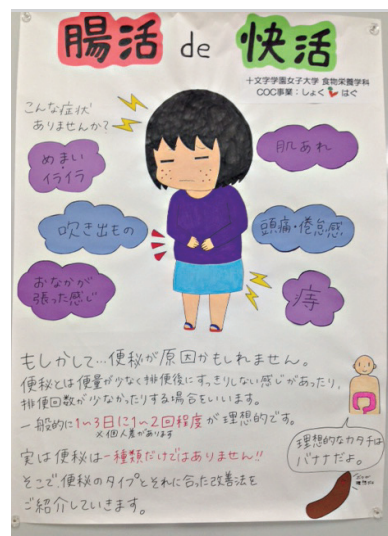 腸活 de 快活
十文字学園女子大学 食物栄養学科
COC事業:しょく はぐ
こんな症状
ありませんか?
めまい・
イライラ
肌あれ
吹き出もの
頭痛・倦怠感
おなかが
張った感じ
痔
もしかして…便秘が原因かもしれません。
便秘とは便量が少なく排便後にすっきりしない感じがあったり、
排便回数が少なかったりする場合をいいます。
一般的に1~3日に1~2回程度が理想的です。
※個人差があります
理想的なカタチは
バナナだよ。
実は便秘は一種類だけではありません!!
そこで、便秘のタイプとそれに合った改善法を
ご紹介していきます。